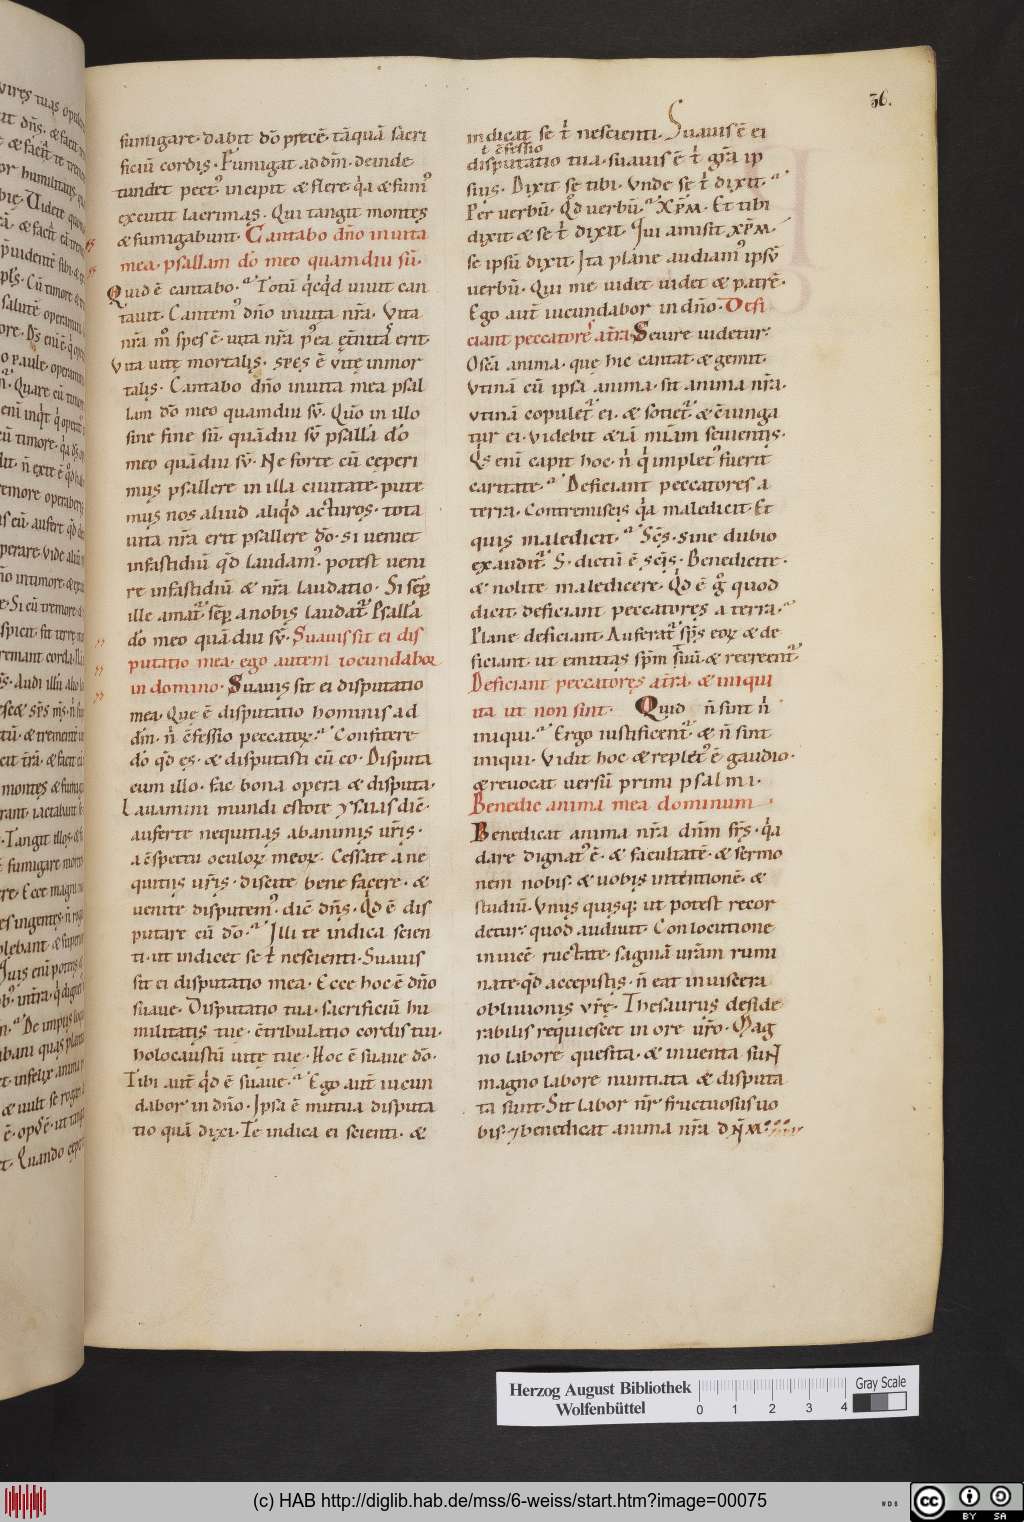 36.
fumigare. dabit dō precē. tāquā sacri
ficiū cordis. Fumigat ad dn̄m. deinde
tundet pect' incipit & flere. q̇a & fum'
excutit lacrimas. Qui tangit montes
& fumigabunt. Cantabo dn̄o in uita
mea. psallam dō meo quamdiu sū.
Quid ē cantabo. Totū q̇cq̇d uiuit can
tauit. Cantem' dn̄o in uita nr̄a. Vita
nr̄a m̊ spes ē. uita nr̄a p'ea ęt̄nitas erit.
Vita uitę mortalis. spes ē uitę inmor
talis. Cantabo dn̄o in uita mea psal
lam dō meo quamdiu sū. Qm̄o in illo
sine fine sū. quādiu sū psallā dō
meo quādiu sū. Ne forte cū ceperi
mus psallere in illa ciuitate. pute
mus nos aliud aliq̇d acturos. tota
uita nr̄a erit psallere dō. si ueniet
infastidiū q̇d laudam'. potest ueni
re infastidiū & nr̄a laudatio. Si sēp
ille amat̄. sēp a nobis laudat̄. Psallā
dō meo quādiu sū. Suauis sit ei dis
putatio mea. ego autem iocundabor
in domino. Suauis sit ei disputatio
mea. Quę ē disputatio hominis ad
dm̄. n̄ ēfessio peccatoꝝ. Confitere
dō q̇d es. & disputasti cū eo. Disputa
cum illo. fac bona opera & disputa.
Lauamini mundi estote ysaias diē.
auferte nequitias ab animis ur̄is.
a ēspectu oculoꝝ meoꝝ. Cessate a ne
quitiis ur̄is. discite bene facere. &
uenite disputem'. diē dn̄s. Q̇d ē dis
putare cū dō. Illi te indica scien
ti. ut indicet se t̄ nescienti. Suauis
sit ei disputatio mea. Ecce hoc ē dn̄o
suaue. Disputatio tua. sacrificiū hu
militatis tuę. ētribulatio cordis tui.
holocaustū uitę tuę. Hoc ē suaue dō.
Tibi aut̄ q̇d ē suaue. Ego aut̄ iucun
dabor in dn̄o. Ipsa ē mutua disputa
tio quā dixi. Te indica ei scienti. &
indicat se t̄ nescienti. Suauis ē ei
t̄ ēfessio
disputatio tua. suauis ē t̄ gr̄a ip
sius. Dixit se tibi. Vnde se t̄ dixit.
Per verbū. Q̇d verbū. Xp̄m. Et tibi
dixit & se t̄ dixit. Qui amisit xp̄m.
se ipsū dixit. Ita plane audiam' ipsū
verbū. Qui me uidet uidet & patrē.
Ego aut̄ iucundabor in dn̄o. Defi
ciant peccatores at̄ra. Scure uidetur.
Oscā anima. quę hic cantat & gemit.
Vtinā cū ipsa anima. sit anima nr̄a.
Vtinā copulet̄ ei. & sotiet̄. & ēiunga
tur ei. videbit & iā miā m seuientis.
Q̇s eni capit hoc. n̄ q̇ implet' fuerit
caritate. Deficiant peccatores a
terra. Contremuscis q̇a maledicit. Et
quis maledicit. Scs̄. sine dubio
exaudit̄. S. dictū ē sc̄is. Benedicite.
& nolite maledicere. Q̇d ē g̊ quod
dicit deficiant peccatores a terra.
Plane deficiant. Auferat̄ sps̄ eoꝝ & de
ficiant. ut emittas spm̄ tuū & recreent̄.
Deficiant peccatores at̄ra. & iniqui
ita ut non sint. Quid n̄ sint n̄
iniqui. Ergo iustificent̄. & n̄ sint
iniqui. Vidit hoc & replet' ē gaudio.
& reuocat versū primi psalmi.
Benedic anima mea dominum.
Benedicat anima nr̄a dn̄m frs̄. q̇a
dare dignat' ē. & facultatē. & sermo
nem nobis. & uobis intentionē. &
studiū. Vnus quisq; ut potest recor
detur quod audiuit. Conlocutione
inuicē ructate. saginā ur̄am rumi
nate. q̇d accepistis. n̄ eat in uiscera
obliuionis vr̄ę. Thesaurus deside
rabilis requiescet in ore ur̄o. Mag
no labore quesita. & inuenta sunt
magno labore nuntiata & disputa
ta sunt. Sit labor nr̄ fructuosus uo
bis. ⁊ benedicat anima nr̄a dn̄m
Herzog August Bibliothek
Wolfenbüttel
0 1 2 3 4
Gray Scale
(c) HAB http://diglib.hab.de/mss/6-weiss/start.htm?image=00075
WDB
cc BY SA